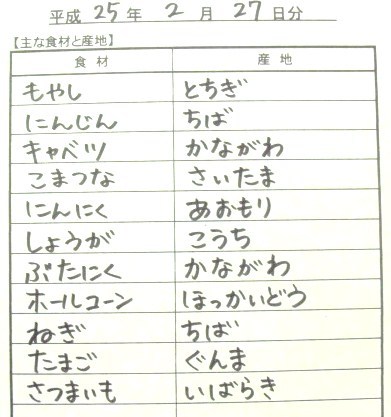 平成 25 年 2 月 27 日分
【主な食材と産地】
食材 産地
もやし とちぎ
にんじん ちば
キャベツ かながわ
こまつな さいたま
にんにく あおもり
しょうが こうち
ぶたにく かながわ
ホールコーン ほっかいどう
ねぎ ちば
たまご ぐんま
さつまいも いばらき